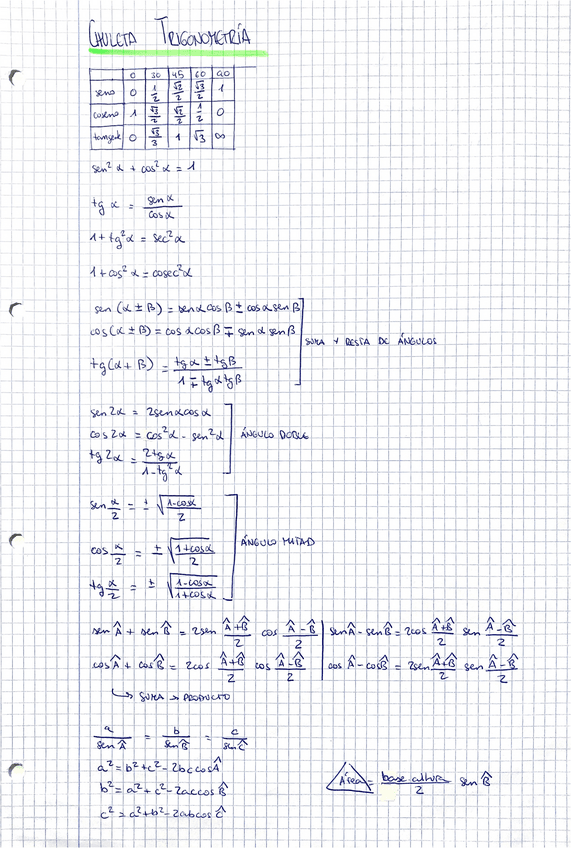 CHULETA TRIGONOMETRÍA
0 30 45 60 90
seno 0 1/2 √2/2 √3/2 1
coseno 1 √3/2 √2/2 1/2 0
tangente 0 √3/3 1 √3 ∞
sen² α + cos² α = 1
tg α = sen α / cos α
1 + tg² α = sec² α
1 + cos² α = cosec² α
sen (α ± β) = sen α cos β ± cos α sen β
cos (α ± β) = cos α cos β ∓ sen α sen β
SUMA Y RESTA DE ÁNGULOS
tg (α ± β) = tg α ± tg β / 1 ∓ tg α tg β
sen 2α = 2 sen α cos α
cos 2α = cos² α - sen² α
ÁNGULO DOBLE
tg 2α = 2 tg α / 1 - tg² α
sen α/2 = ± √(1 - cos α / 2)
cos α/2 = ± √(1 + cos α / 2)
ÁNGULO MITAD
tg α/2 = ± √(1 - cos α / 1 + cos α)
sen Â + sen B̂ = 2 sen Â + B̂ / 2 cos Â - B̂ / 2 | sen Â - sen B̂ = 2 cos Â + B̂ / 2 sen Â - B̂ / 2
cos Â + cos B̂ = 2 cos Â + B̂ / 2 cos Â - B̂ / 2 | cos Â - cos B̂ = 2 sen Â + B̂ / 2 sen Â - B̂ / 2
↳ SUMA → PRODUCTO
a / sen Â = b / sen B̂ = c / sen Ĉ
a² = b² + c² - 2bc cos Â
b² = a² + c² - 2ac cos B̂
c² = a² + b² - 2ab cos Ĉ
Área = base · altura / 2 sen B̂